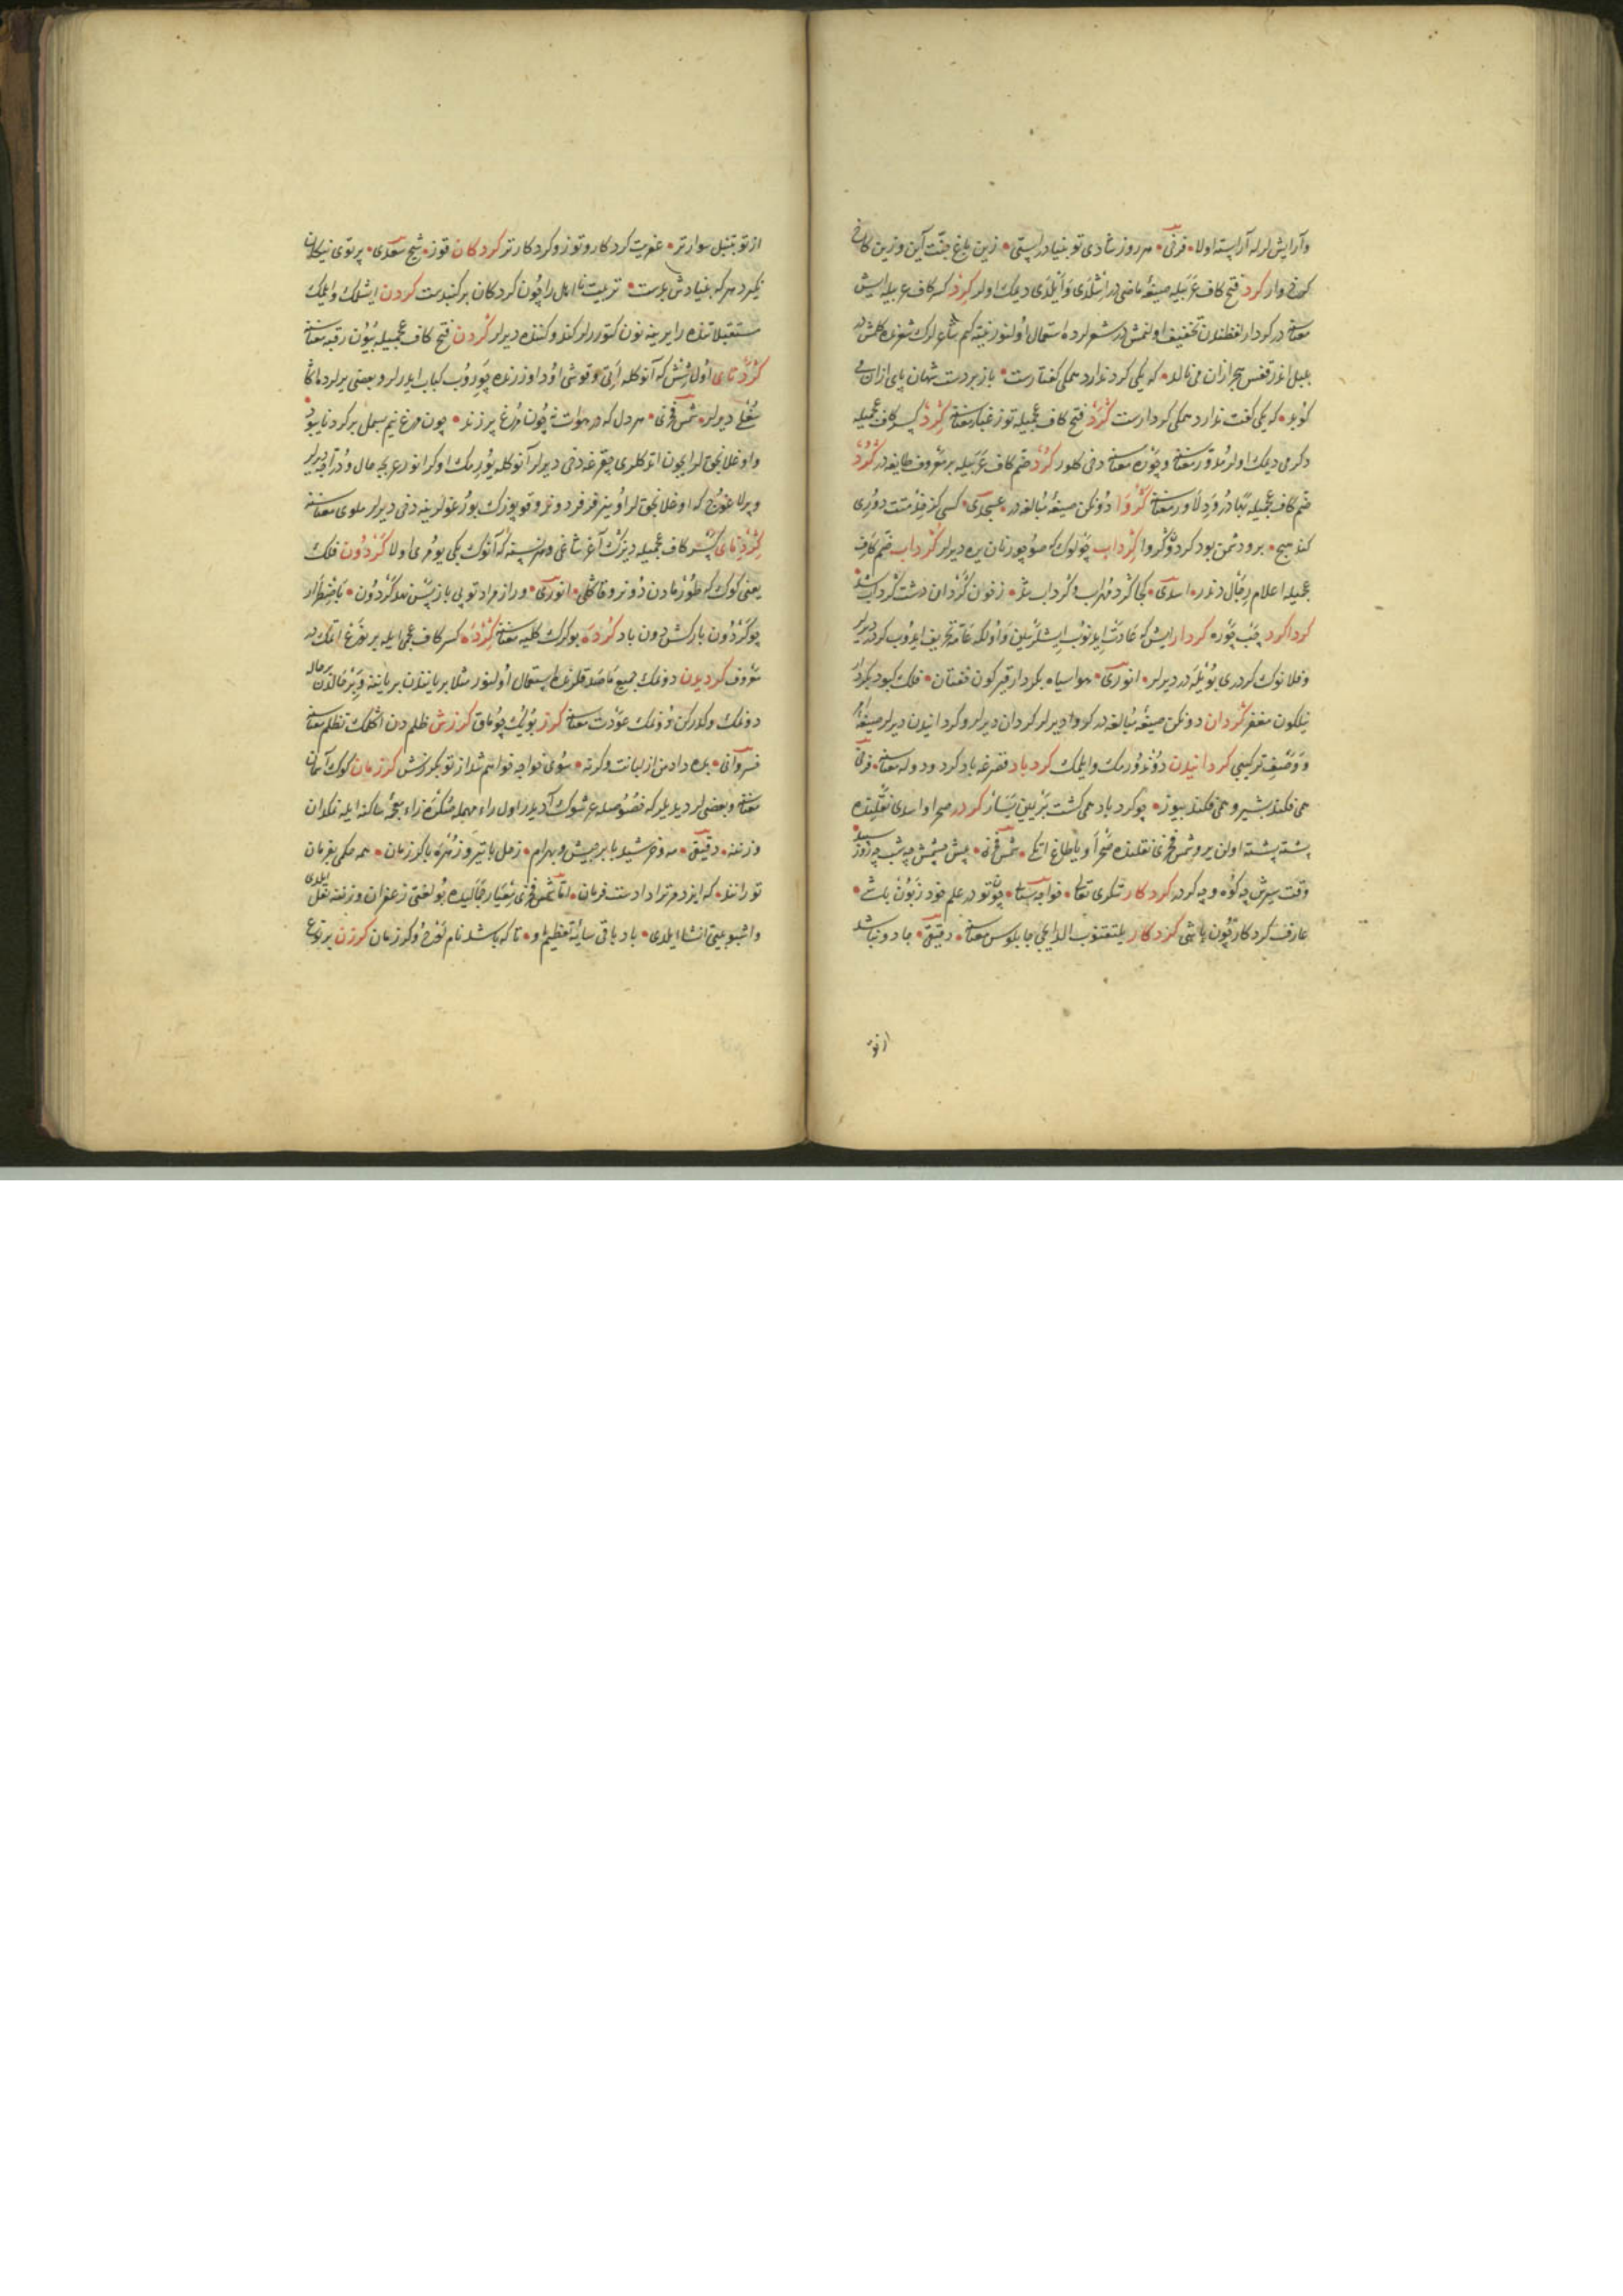 وآرایش لر له آراسته اولا • فرخی • هر روز شادی نو بنیاد رامشی • زین باغ جنت آیین وزین کاخ
کرخ وار کرد فتح کاف عربیله صیغهٔ ماضیدر اشلدی وایلدی دیمک اولر کرد کسر کاف عربیله ایش
معناسنه در کردار لفظندن تخفیف اولنمش در شعرلرده استعمال اولنور نیته کم شاعرلرک شعرنده کلمش در
بلبل اندر قفس هجر ازان می نالد • که یکی کرد ندارد همگی گفتارست • باز بر دست شهان پای ازان
کوبد • که یکی گفت ندارد همگی کردارست گرد فتح کاف عجمیله توز غبار معناسنه گرد کسر کاف عجمیله
دکرمی دیمک اولر مدور معناسنه و چوره معناسنه دخی کلور کرد ضم کاف عربیله بر معروف طایفه در گرد
ضم کاف عجمیله بهادر و دلاور معناسنه گردوا دونکن صیغهٔ مبالغه در • عسجدی • کسی کز خدمتت دوری
کند هیچ • برو دشمن بود گردون گردوا گرداب چولوک که صو چوزنان یره دیرلر گرداب ضم کاف
عجمیله اعلام رجال دندر • اسدی • کجا گرد مهراب و گرداب شد • زخون گردان دشت گرداب شد
گرداگرد چپ چوره کردار ایش که عادت ایدنوب ایشلریلن و اولکه عامه تحریف ایدوب کرده دیرلر
وفلانوک کردری بویله در دیرلر • انوری • هوا سیاه بکردار قیرگون خفتان • فلک کبود بکردار
نیلگون مغفر گردان دونکن صیغهٔ مبالغه در گردوا دیرلر گردان دیرلر و گردانیدن دیرلر صیغهٔ امر
و وصف ترکیبی گردانیدن دوندورمک وایلمک گردباد قصرغه باد گرد و دوله معناسنه • فرخی
همی فکند بشیر و همی فکند بیوز • چو گردباد همی گشت بر یمین یسار گردر صحرا و اسدی نقلنده
پشته پشته اولن یر و شمس فخری نقلنده صحرا و یا طاغ اتکی • شمس فخری • پیش چشمش چه شب چه روز سپید
وقت سیرش چه کوه و چه گردر کردکار تنکری تعالی • خواجه سنائی • چون تو در علم خود زبون باشی •
عارف کردکار چون باشی کردکار یلتقنوب الدایجی چاپلوس معناسنه • دقیقی • جادو نباشد
از تو
از تو بتنبل سوارتر • عفریت کردکار و توزو کردکارتر کردکان قوز • شیخ سعدی • پرتو نیکان
نگیرد هر که بنیادش بدست • تربیت نااهل را چون گردکان بر گنبدست کردن ایشلک وایلمک
مستقبلاتنده را یرینه نون کتوررلر کند و کننده دیرلر گردن فتح کاف عجمیله بیون رقبه معناسنه
گردنای اول رشش که آنوکله اتی و قوشی اود اوزرنده چوروب کباب ایدرلر و بعضی یرلرده اکا
شغلی دیرلر • شمس فخری • هر دل که در هوات نه چون مرغ پر زند • چون مرغ نیم بسمل بر گردنا بود •
و اوغلانجقلر ایچون اتدکلری چقرغه دخی دیرلر آنوکله یوریمک اوکرانور عربجه حال و دراجه دیرلر
و برلاغوج که اوغلانجقلر اوینر فرفر دوندرو قوپوزک بورغولرینه دخی دیرلر ملوی معناسنه
گردنای کسر کاف عجمیله دیزک آغرشاغی و هر نسنه که آنوک بکی یومری اولا گردون فلک
یعنی کوک که طورمادن دونر و قاکلی • انوری • وراز مراد تو پی باز پس نهد گردون • باضطرار
چو گردون بارکش دون باد گرده بوکرک کلیه معناسنه گرده کسر کاف عجمی ایله بر نوع اتمک در
معروف گردیدن دونمک جمیع مقاصد قلرنده استعمال اولنور مثلا بر یانندن بر یانه و بر حالدن بر حاله
دونمک و کلورکن دونمک عودت معناسنه گرز بویک چوماق گرزش ظلمدن اکلمک تظلم معناسنه
خسروانی • بده داد من از لبانت وگرنه • سوی خواجه خواهم شد از تو بگرزش گرزمان کوک آسمان
معناسنه و بعضی لر دیدیلر که خصوصله عرشوک آدیدر اول راء مهمله متکرره زاء معجمهٔ ساکنه ایله نکران
وزننه • دقیقی • مه و خرشید با برجیس و بهرام • زحل با تیر و زهره با گرزمان • همه حکمی بفرمان
تو رانند • که ایزد مر ترا دادست فرمان • اما شمس فخری معیار جمالیده بو لغتی زعفران وزننه نقل ایلدی
و اشبو بیتی انشا ایلدی • باد باقی سایهٔ تعظیم او • تا که باشد نام چرخ و گرزمان گرزن بر نوع